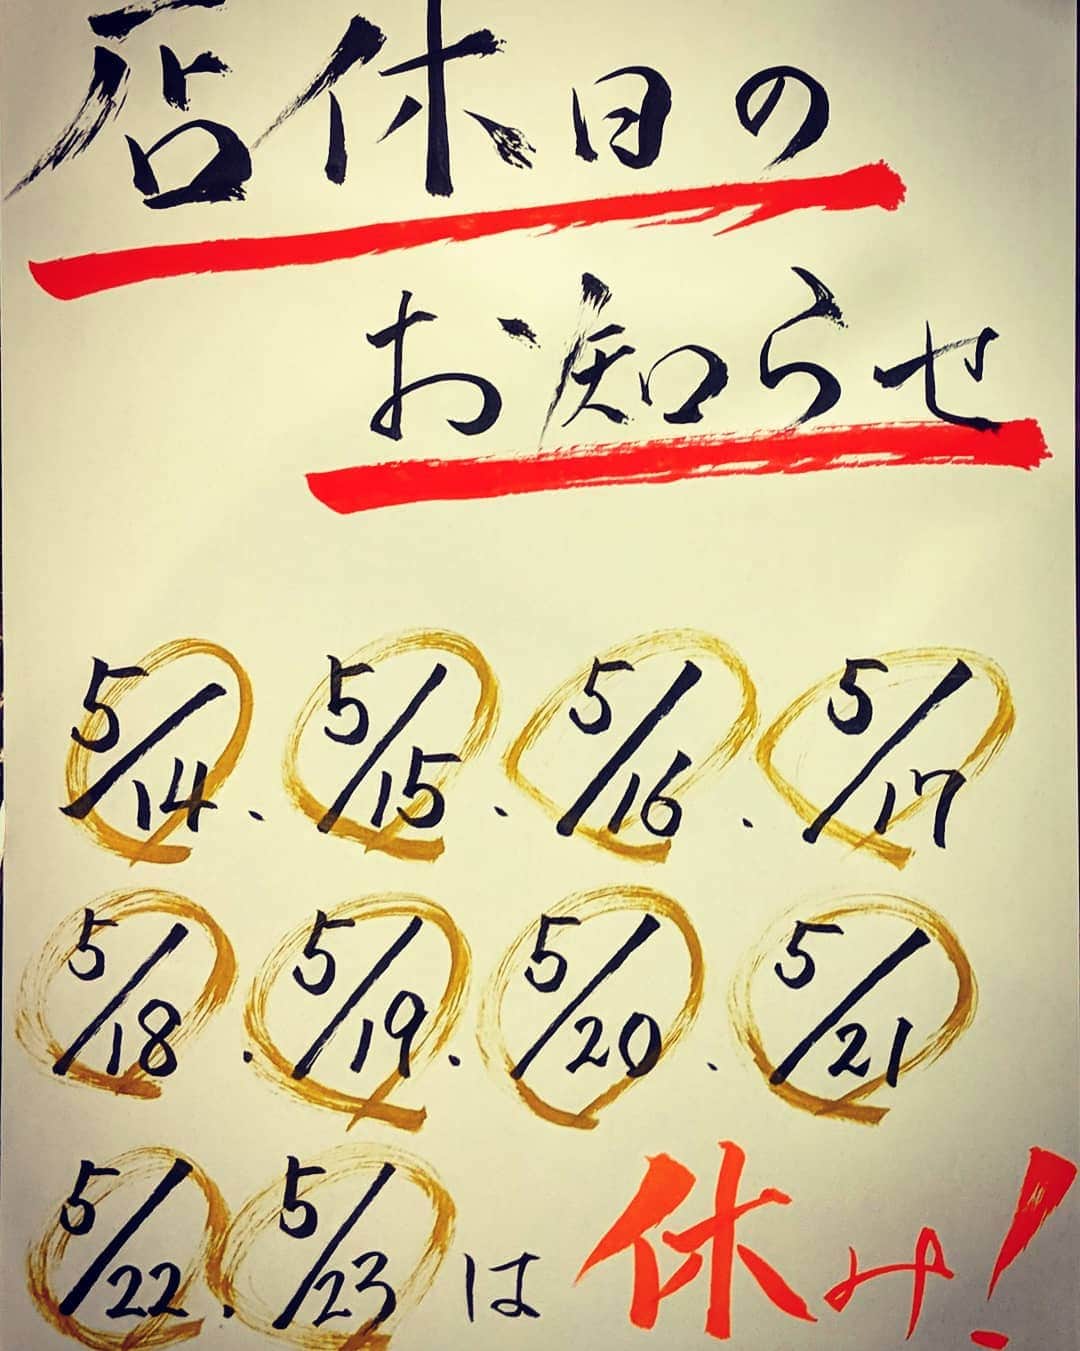 店休日の
お知らせ
5/14.5/15.5/16.5/17
5/18.5/19.5/20.5/21
5/22.5/23は休み!